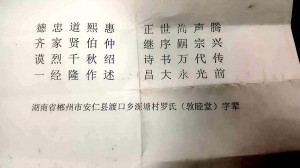 德忠道熙惠 正世尚声腾
齐家贤伯仲 继序嗣宗兴
谟烈千秋绍 诗书万代传
一经隆作述 吕大永光前
湖南省郴州市安仁县渡口乡莲塘村罗氏（敦睦堂）字辈